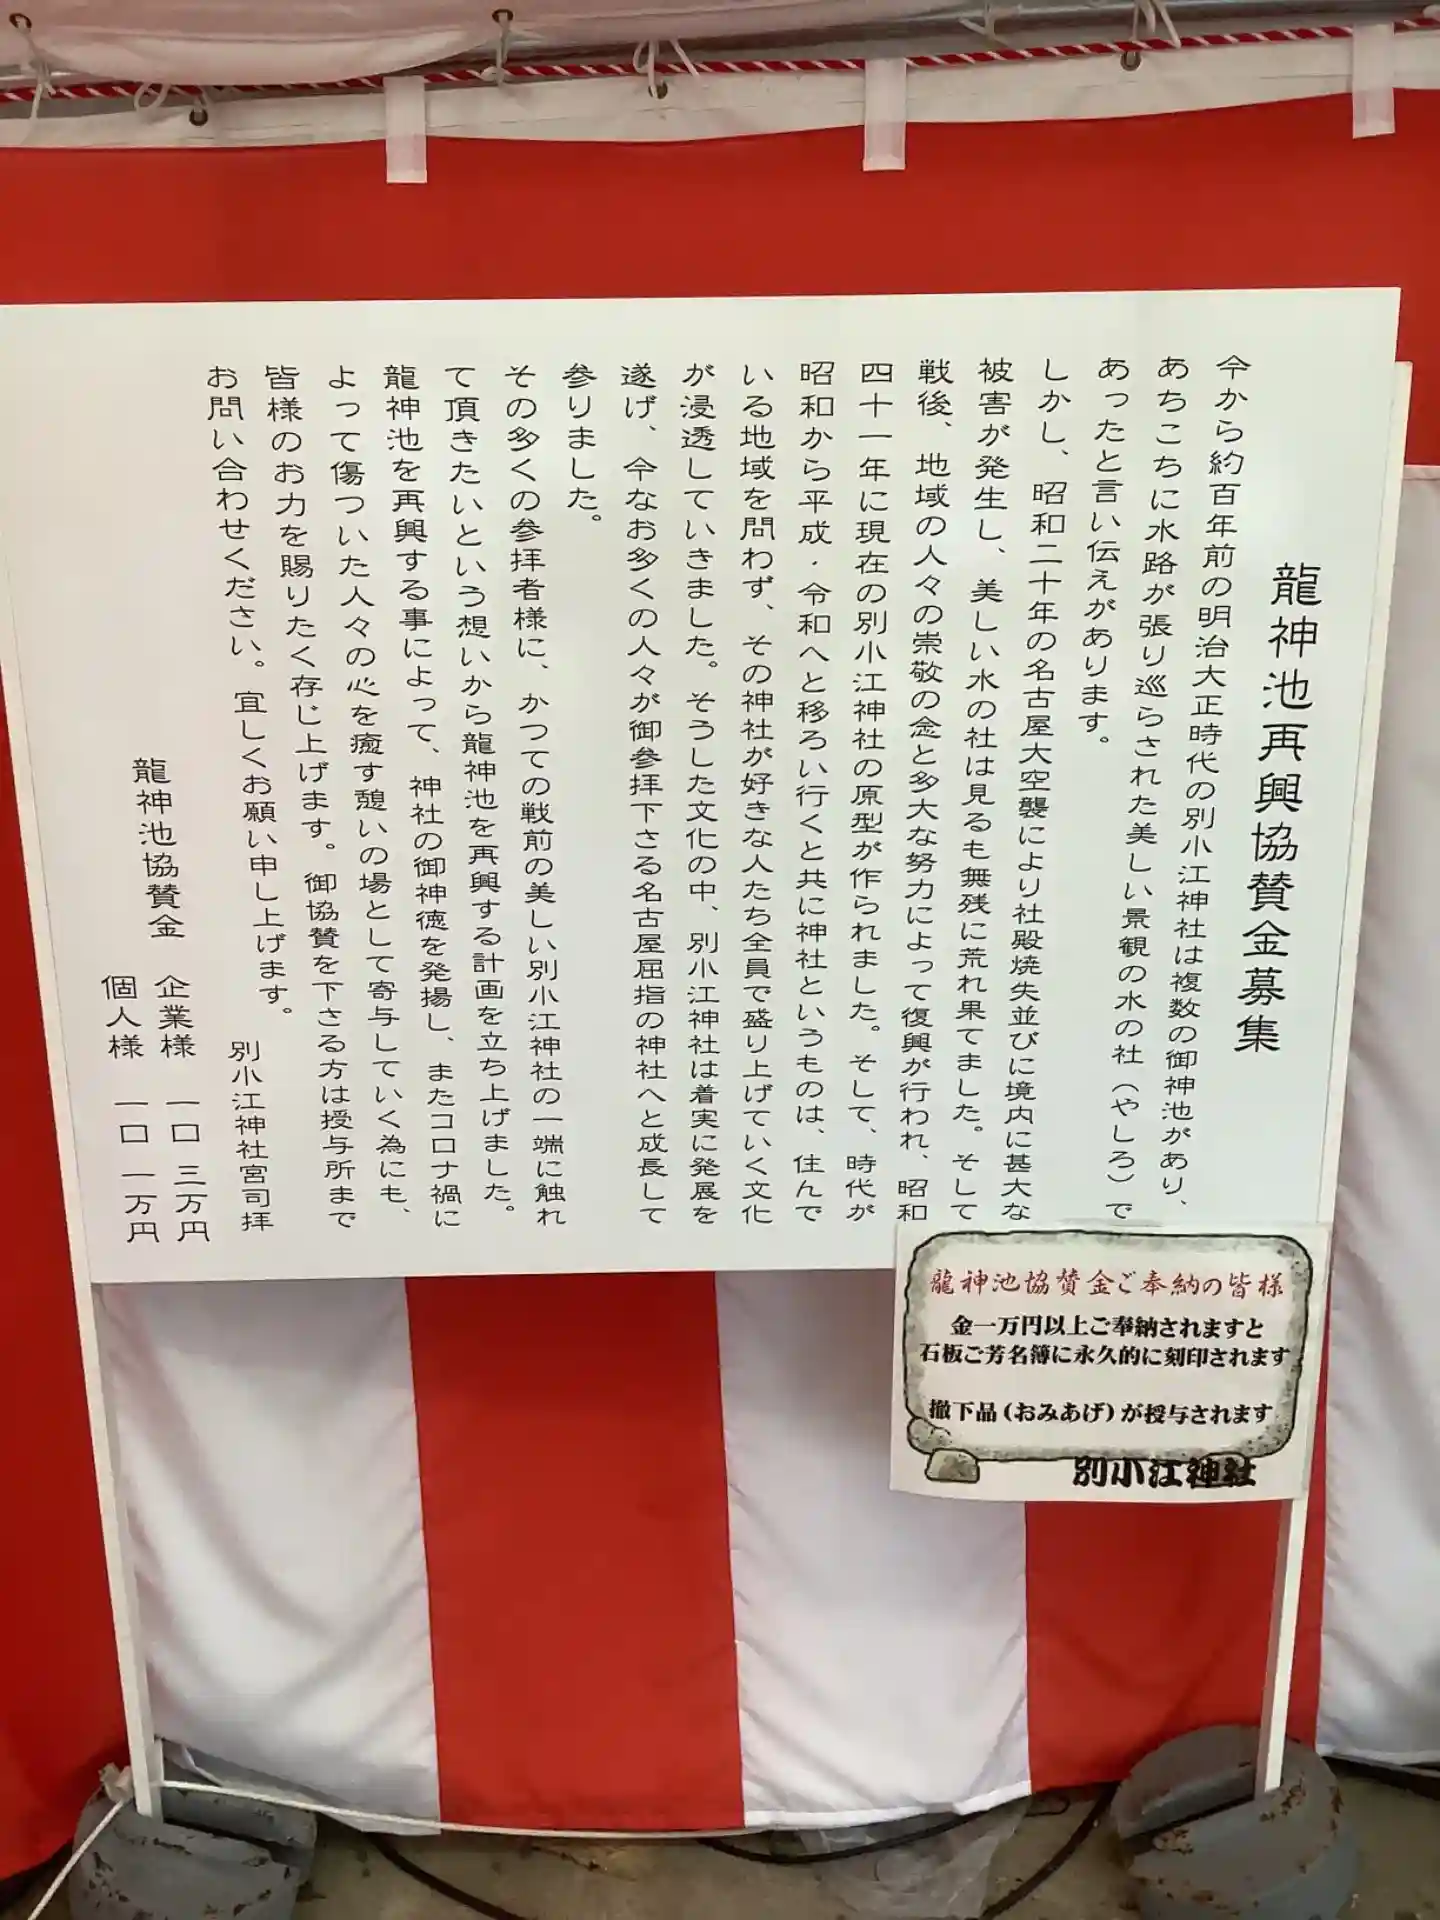 龍神池再興協賛金募集
今から約百年前の明治大正時代の別小江神社は複数の御神池があり、
あちこちに水路が張り巡らされた美しい景観の水の社（やしろ）で
あったと言い伝えがあります。
しかし、昭和二十年の名古屋大空襲により社殿焼失並びに境内に甚大な
被害が発生し、美しい水の社は見るも無残に荒れ果てました。そして
戦後、地域の人々の崇敬の念と多大な努力によって復興が行われ、昭和
四十一年に現在の別小江神社の原型が作られました。そして、時代が
昭和から平成・令和へと移ろい行くと共に神社というものは、住んで
いる地域を問わず、その神社が好きな人たち全員で盛り上げていく文化
が浸透していきました。そうした文化の中、別小江神社は着実に発展を
遂げ、今なお多くの人々が御参拝下さる名古屋屈指の神社へと成長して
参りました。
その多くの参拝者様に、かつての戦前の美しい別小江神社の一端に触れ
て頂きたいという想いから龍神池を再興する計画を立ち上げました。
龍神池を再興する事によって、神社の御神徳を発揚し、またコロナ禍に
よって傷ついた人々の心を癒す憩いの場として寄与していく為にも、
皆様のお力を賜りたく存じ上げます。御協賛を下さる方は授与所まで
お問い合わせください。宜しくお願い申し上げます。
別小江神社宮司拝
龍神池協賛金　企業様　一口　三万円
個人様　一口　一万円
龍神池協賛金ご奉納の皆様
金一万円以上ご奉納されますと
石板ご芳名簿に永久的に刻印されます
撤下品（おみあげ）が授与されます
別小江神社